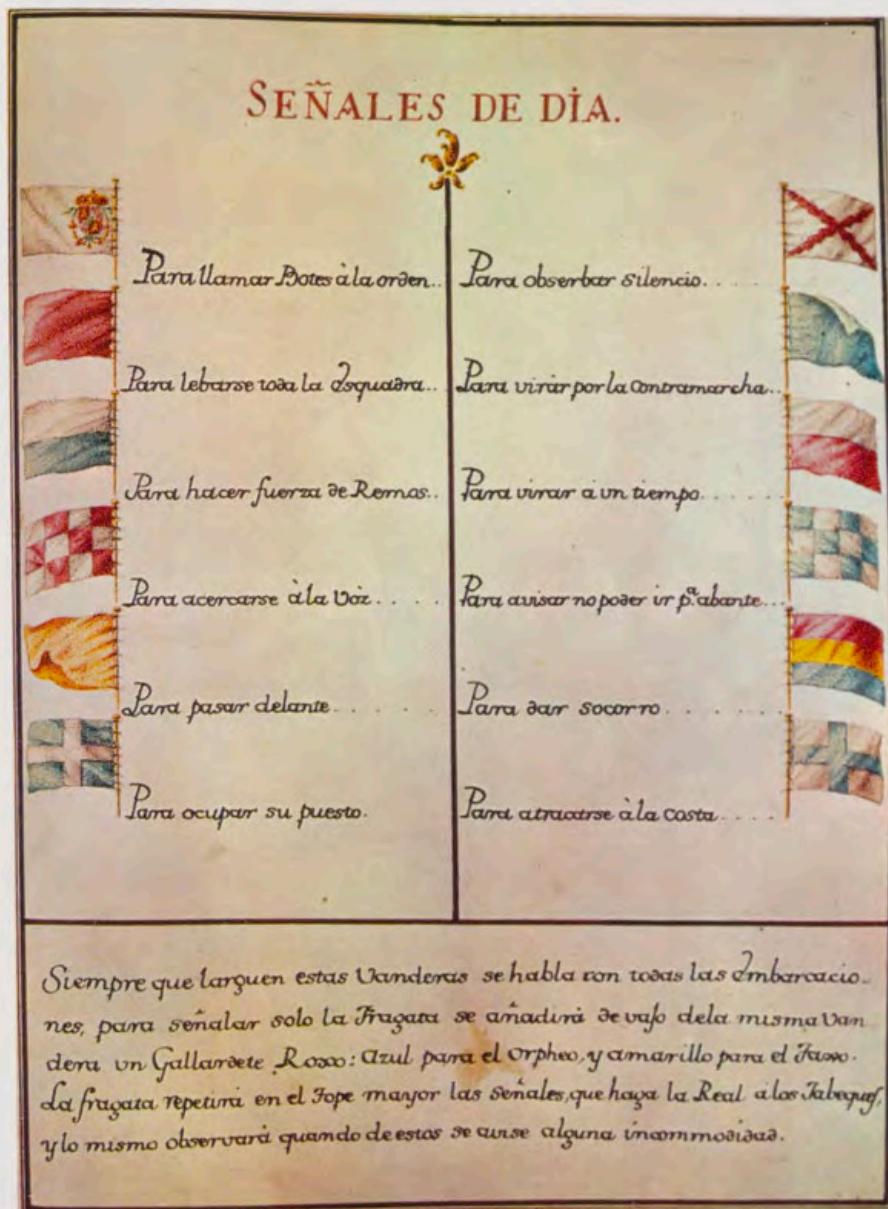 SEÑALES DE DIA.
Para llamar Botes à la orden..
Para lebarse toda la Esquadra..
Para hacer fuerza de Remos..
Para acercarse à la Vòz....
Para pasar delante.....
Para ocupar su puesto.
Para obserbar silencio.....
Para viràr por la Contramarcha..
Para virar à un tiempo.....
Para avisar no poder ir p.ª abante...
Para dar socorro.......
Para atracarse à la costa....
Siempre que larguen estas Vanderas se habla con todas las Embarcacio-
nes, para señalar solo la Fragata se añadirà de vajo dela misma Van
dera un Gallardete Roxo: azul para el Orpheo, y amarillo para el
La fragata repetirà en el Tope mayor las señales, que haga la Real a los Jabeques,
y lo mismo observarà quando de estos se avise alguna incommodidad.